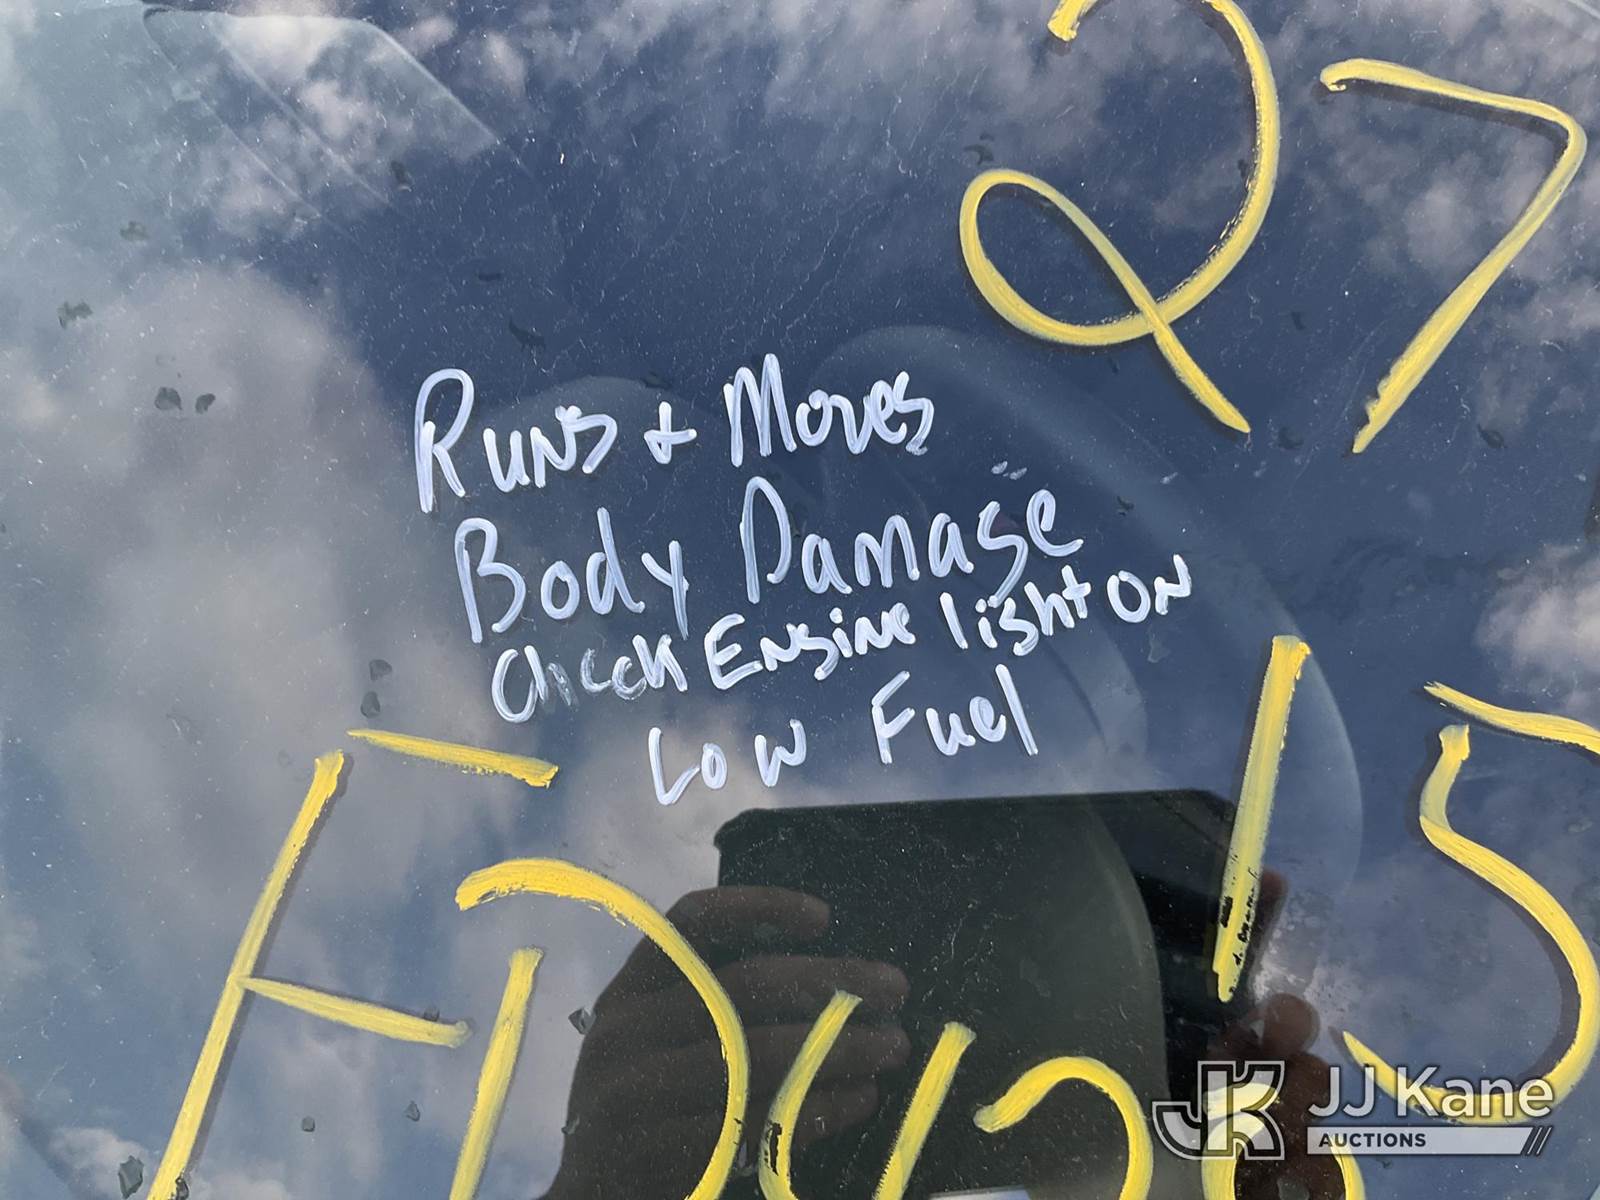 27
Runs + Moves
Body Damage
Check Engine light ON
Low Fuel
15
JJ Kane
AUCTIONS